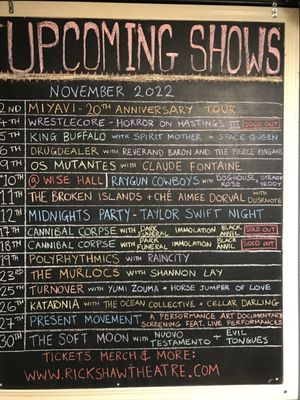 UPCOMING SHOWS
NOVEMBER 2022
2ND MIYAVI - 20TH ANNIVERSARY TOUR
4TH WRESTLECORE - HORROR ON HASTINGS III SOLD OUT
5TH KING BUFFALO WITH SPIRIT MOTHER + SPACE QUEEN
6TH DRUGDEALER WITH REVERAND BARON AND THE PIERCE KINGANS
9TH OS MUTANTES WITH CLAUDE FONTAINE
10TH @ WISE HALL RAYGUN COWBOYS WITH DOGHOUSE ROSE STEADY TEDDY
11TH THE BROKEN ISLANDS + CHÉ AIMEE DORVAL WITH DUSKNOTE
12TH MIDNIGHTS PARTY - TAYLOR SWIFT NIGHT
17TH CANNIBAL CORPSE WITH DARK FUNERAL IMMOLATION BLACK ANVIL SOLD OUT
18TH CANNIBAL CORPSE WITH DARK FUNERAL IMMOLATION BLACK ANVIL SOLD OUT
19TH POLYRHYTHMICS WITH RAINCITY
23RD THE MURLOCS WITH SHANNON LAY
25TH TURNOVER WITH YUMI ZOUMA + HORSE JUMPER OF LOVE
26TH KATATONIA WITH THE OCEAN COLLECTIVE + CELLAR DARLING
27TH PRESENT MOVEMENT A PERFORMANCE ART DOCUMENTARY SCREENING FEAT. LIVE PERFORMANCES
30TH THE SOFT MOON WITH NUOVO TESTAMENTO + EVIL TONGUES
TICKETS MERCH & MORE:
WWW.RICKSHAWTHEATRE.COM